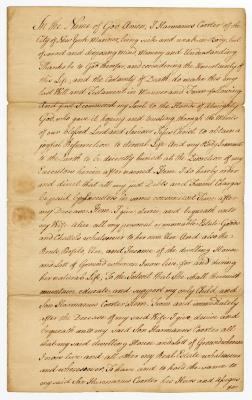 In the Name of God Amen, I Harmanus Coster of the
City of New York Mariner being sick and weak in Body, but
of sound and disposing Mind Memory and Understanding
Thanks be to God therefor, and considering the Uncertainty of
this Life and the Certainty of Death do make this my
last Will and Testament in Manner and Form following
And first I commend my Soul to the Hands of Almighty
God who gave it hoping and trusting through the Merits
of our blessed Lord and Saviour Jesus Christ to obtain a
joyful Resurrection to eternal Life And my Body I commit
to the earth to be decently buried at the Direction of my
Executors herein after named Item I do hereby order
and direct that all my just Debts and Funeral Charges
be paid in some convenient Time after
my Decease Item I give devise and bequeath unto
my Wife all my personal moveable Estate Goods
and Chattels whatsoever to her own Use And also the
Rents Profits Use and Income of the dwelling House
and Lot of Ground wherein I now live for and during
her natural Life To the Intent that she shall thereout
maintain educate and support my only Child and
Son Harmanus Coster Item From and immediately
after the Decease of my said Wife I give devise and
bequeath unto my said Son Harmanus Coster all
that my said dwelling House and Lot of Ground wherein
I now live and all other my Real Estate whatsoever
and wheresoever To have and to hold the same to
my said Son Harmanus Coster his Heirs and Assigns
for